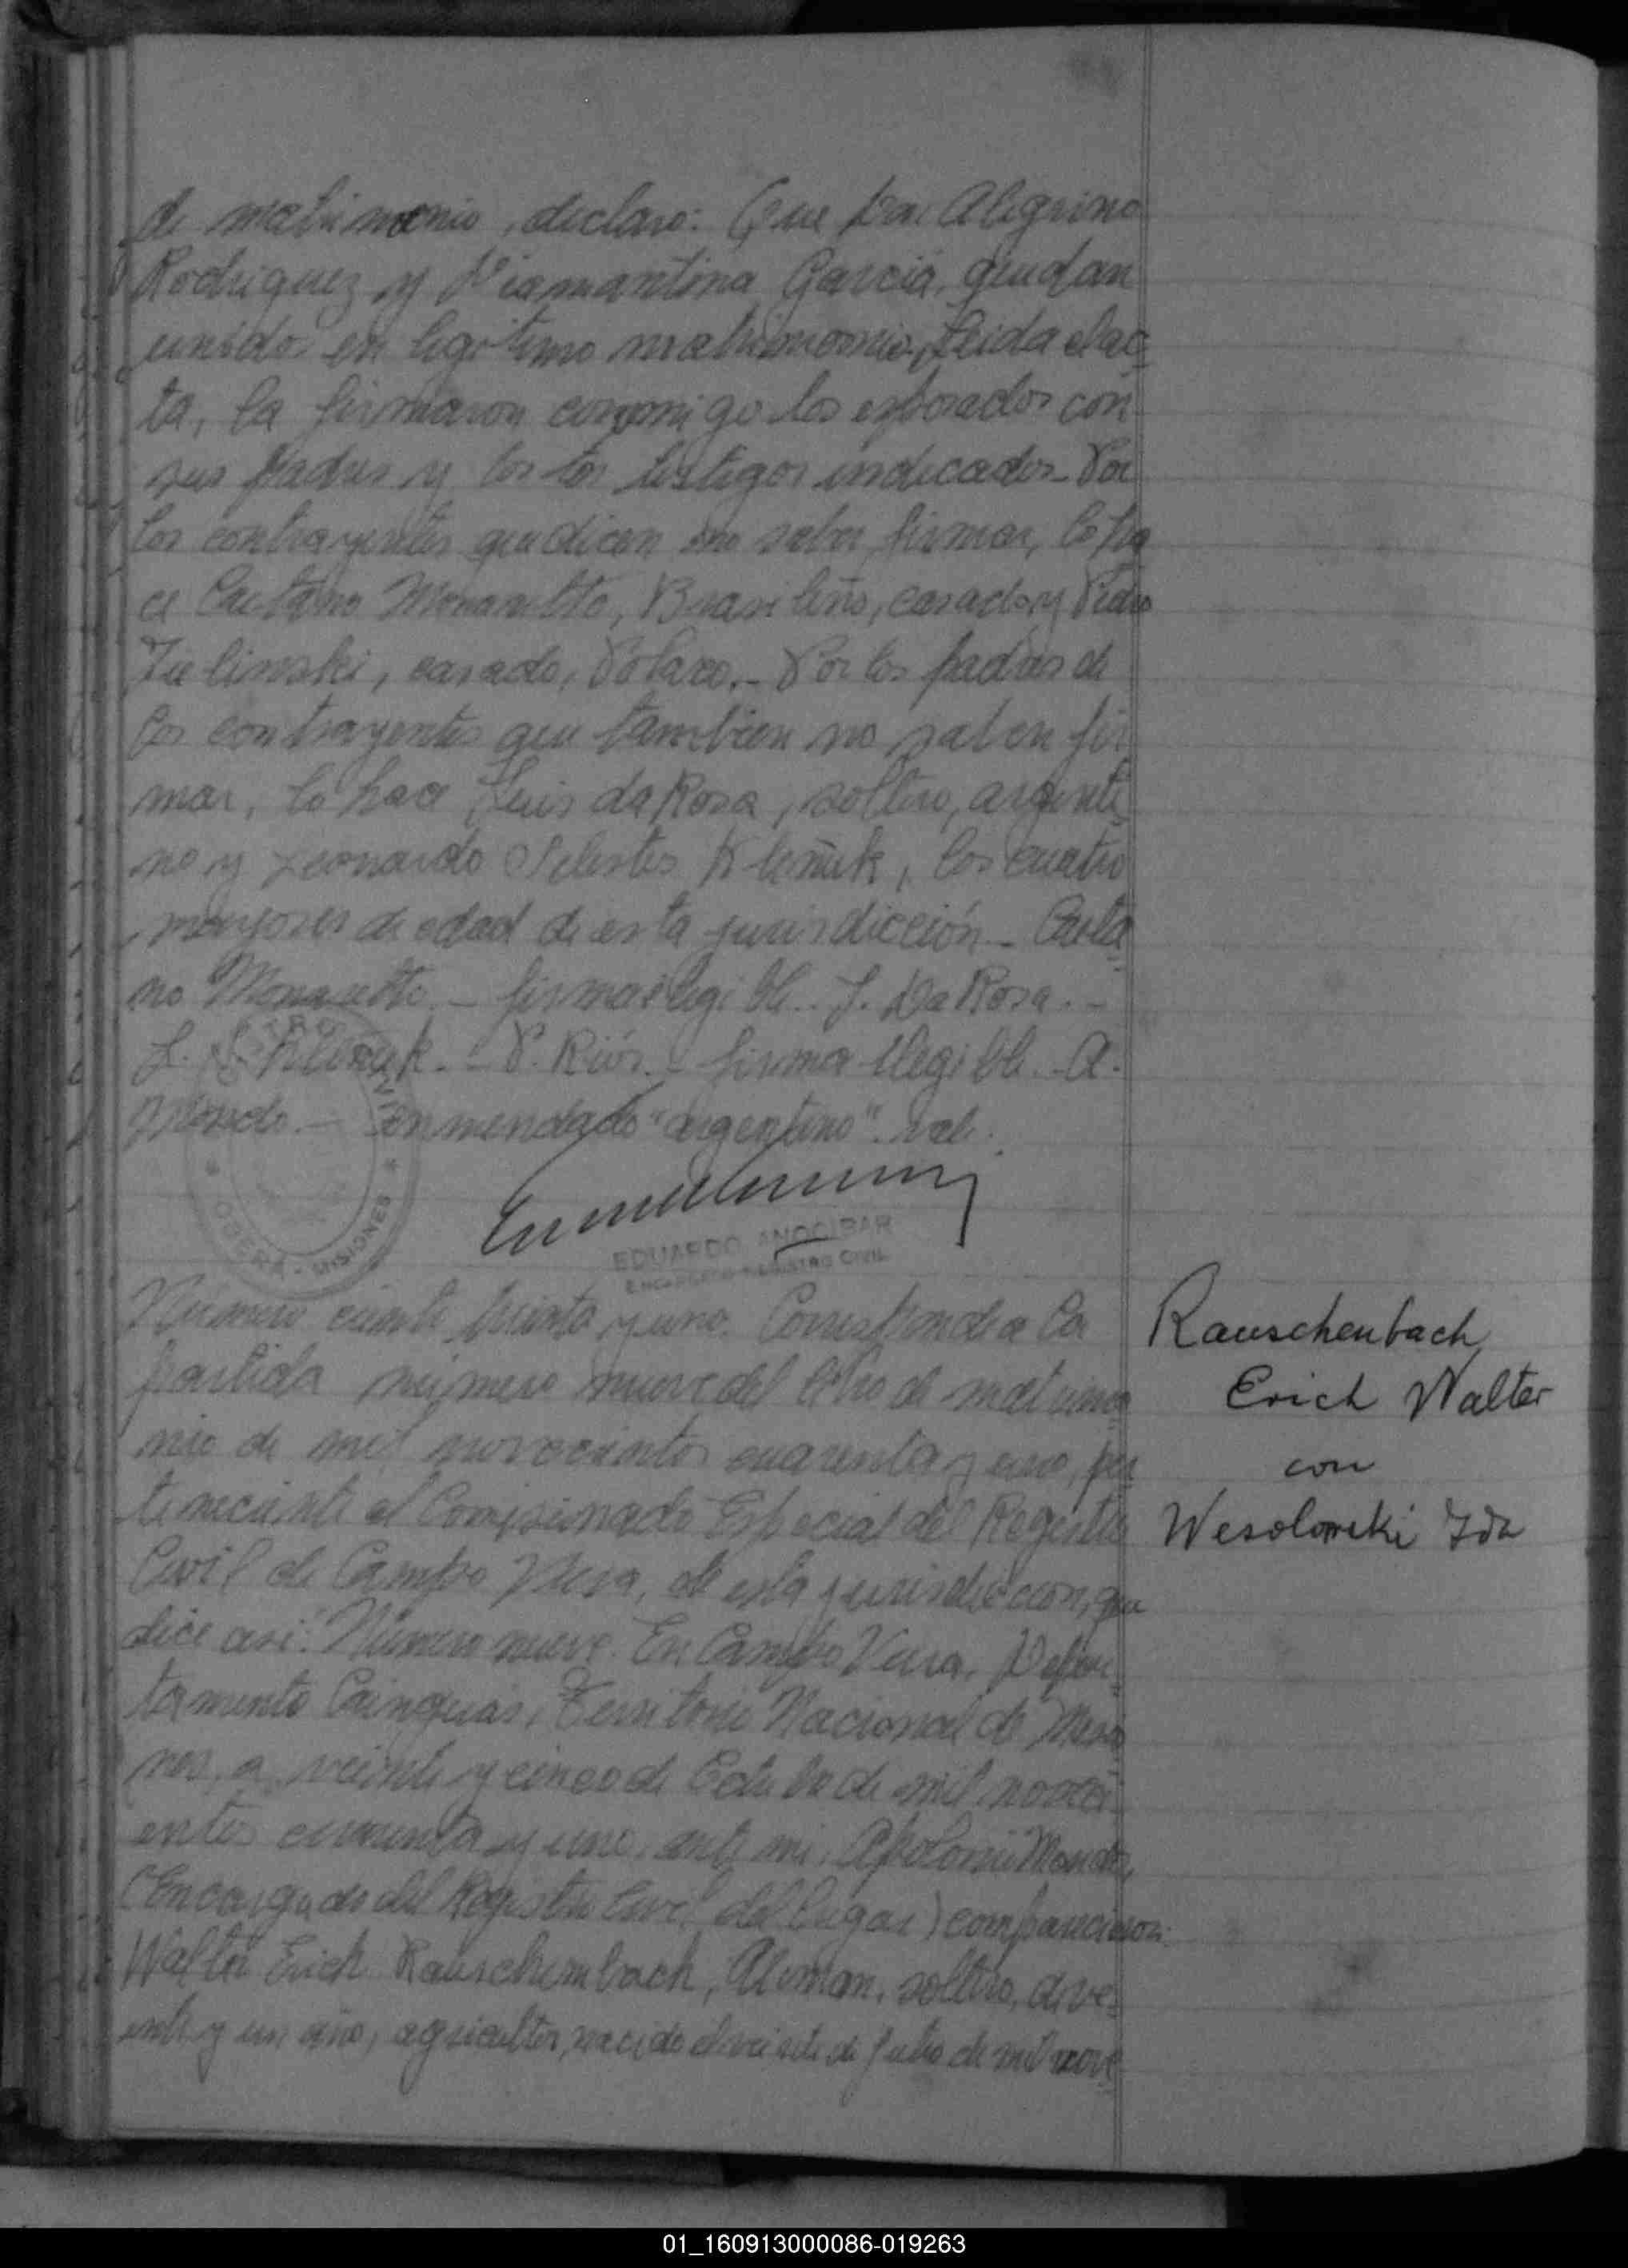 de matrimonio, declaro: Que Don Alegrino
Rodriguez y Diamantina Garcia, quedan
unidos en legitimo matrimonio, Leida el ac-
ta, la firmaron conmigo los esposados con
sus padres y los testigos indicados. Por
los contrayentes que dicen no saber firmar, lo ha
ce Caetano Monaretto, Brasileño, casado y Pedro
casado, Polaco.- Por los padres de
los contrayentes que tambien no saben fir
mar, lo hace Luis da Rosa, soltero, argenti
no y Leonardo los cuatro
mayores de edad de esta jurisdicción - Caeta
no Monaretto. - firma ilegible. - J. Da Rosa. -
L. S. - P. Ríos. - firma ilegible. - A.
- enmendado "argentino". vale.
EDUARDO ANOCIBAR
ENCARGADO REGISTRO CIVIL
OBERA - MISIONES
Número ciento treinta y uno Corresponde a la
partida número nueve del libro de matrimo
nio de mil novecientos cuarenta y uno, per
teneciente al Comisionado Especial del Registro
Civil de Campo Viera, de esta jurisdiccion, que
dice asi: "Número nueve. En Campo Viera, Depar-
tamento Cainguás, Territorio Nacional de Misio
nes, a veinte y cinco de Octubre de mil noveci-
entos cuarenta y uno, ante mi, Apolonio
(Encargado del Registro Civil del lugar) comparecieron:
Walter Erich Rauschembach, Aleman, soltero, de ve-
inte y un año, agricultor, nacido el veinte de Julio de mil nove-
Rauschenbach
Erich Walter
con
Wesolowski Ida
01_160913000086-019263